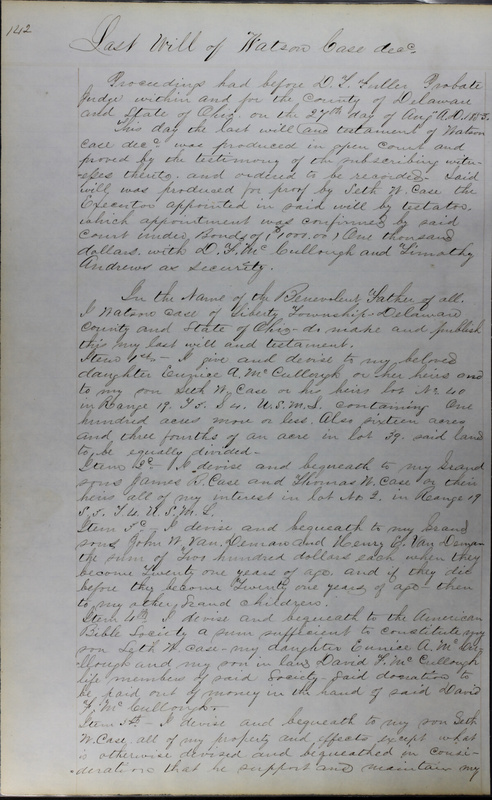 142
Last Will of Watson Case decd.
Proceedings had before D. T. Fuller Probate
Judge within and for the County of Delaware
and State of Ohio. on the 27th day of Aug A.D. 1853.
This day the last will and testament of Watson
Case decd was produced in open Court and
proved by the testimony of the subscribing witn-
esses thereto. and ordered to be recorded. Said
will was produced for proof by Seth W. Case the
Executor appointed in said will by testator.
which appointment was confirmed by said
Court under Bonds of ($1000.00) One thousand
dollars. with D. F. McCullough and Timothy
Andrews as security.
In the Name of the Benevolent Father of all.
I Watson Case of Liberty Township. Delaware
County and State of Ohio. do make and publish
this my last will and testament.
Item 1st. - I give and devise to my beloved
daughter Eunice A. McCullough or her heirs and
to my son Seth W. Case or his heirs lot No 40
in Range 19. T 3. S 4. U.S.M.L. containing One
hundred acres more or less. Also sixteen acres
and three fourths of an acre in lot 39. said land
to be equally divided.
Item 2d - I devise and bequeath to my Grand
sons James Case and Thomas W. Case or their
heirs all of my interest in lot No 2. in Range 19
S 3. T 4. U.S.M.L.
Item 3d - I devise and bequeath to my Grand
sons John W. Van, and Henry Van Deman
the sum of Two hundred dollars each when they
become Twenty one years of age. and if they die
before they become Twenty one years of age - then
to my other Grand children.
Item 4th I devise and bequeath to the American
Bible Society a sum sufficient to constitute my
son Seth W. Case - my daughter Eunice A. McCu-
llough and my son in law David F. McCullough
life members of said Society - said donation to
be paid out of money in the hand of said David
F. McCullough.
Item 5th - I devise and bequeath to my son Seth
W. Case, all of my property and effects except what
is otherwise devised and bequeathed in consi-
deration that he support and maintain my